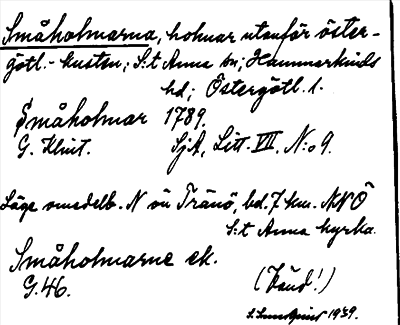 Småholmarna, holmar utanför öster-
götl.-kusten; S:t Anna sn; Hammarkinds
hd; Östergötl. l.
Småholmar 1789.
G. Klint. SjA, Litt. VII, N:o 9.
Läge omedelb. N ön Tränö, bd. 7 km. NNÖ
S:t Anna kyrka.
Småholmarne ek.
G.46. (Känd!)
1939.